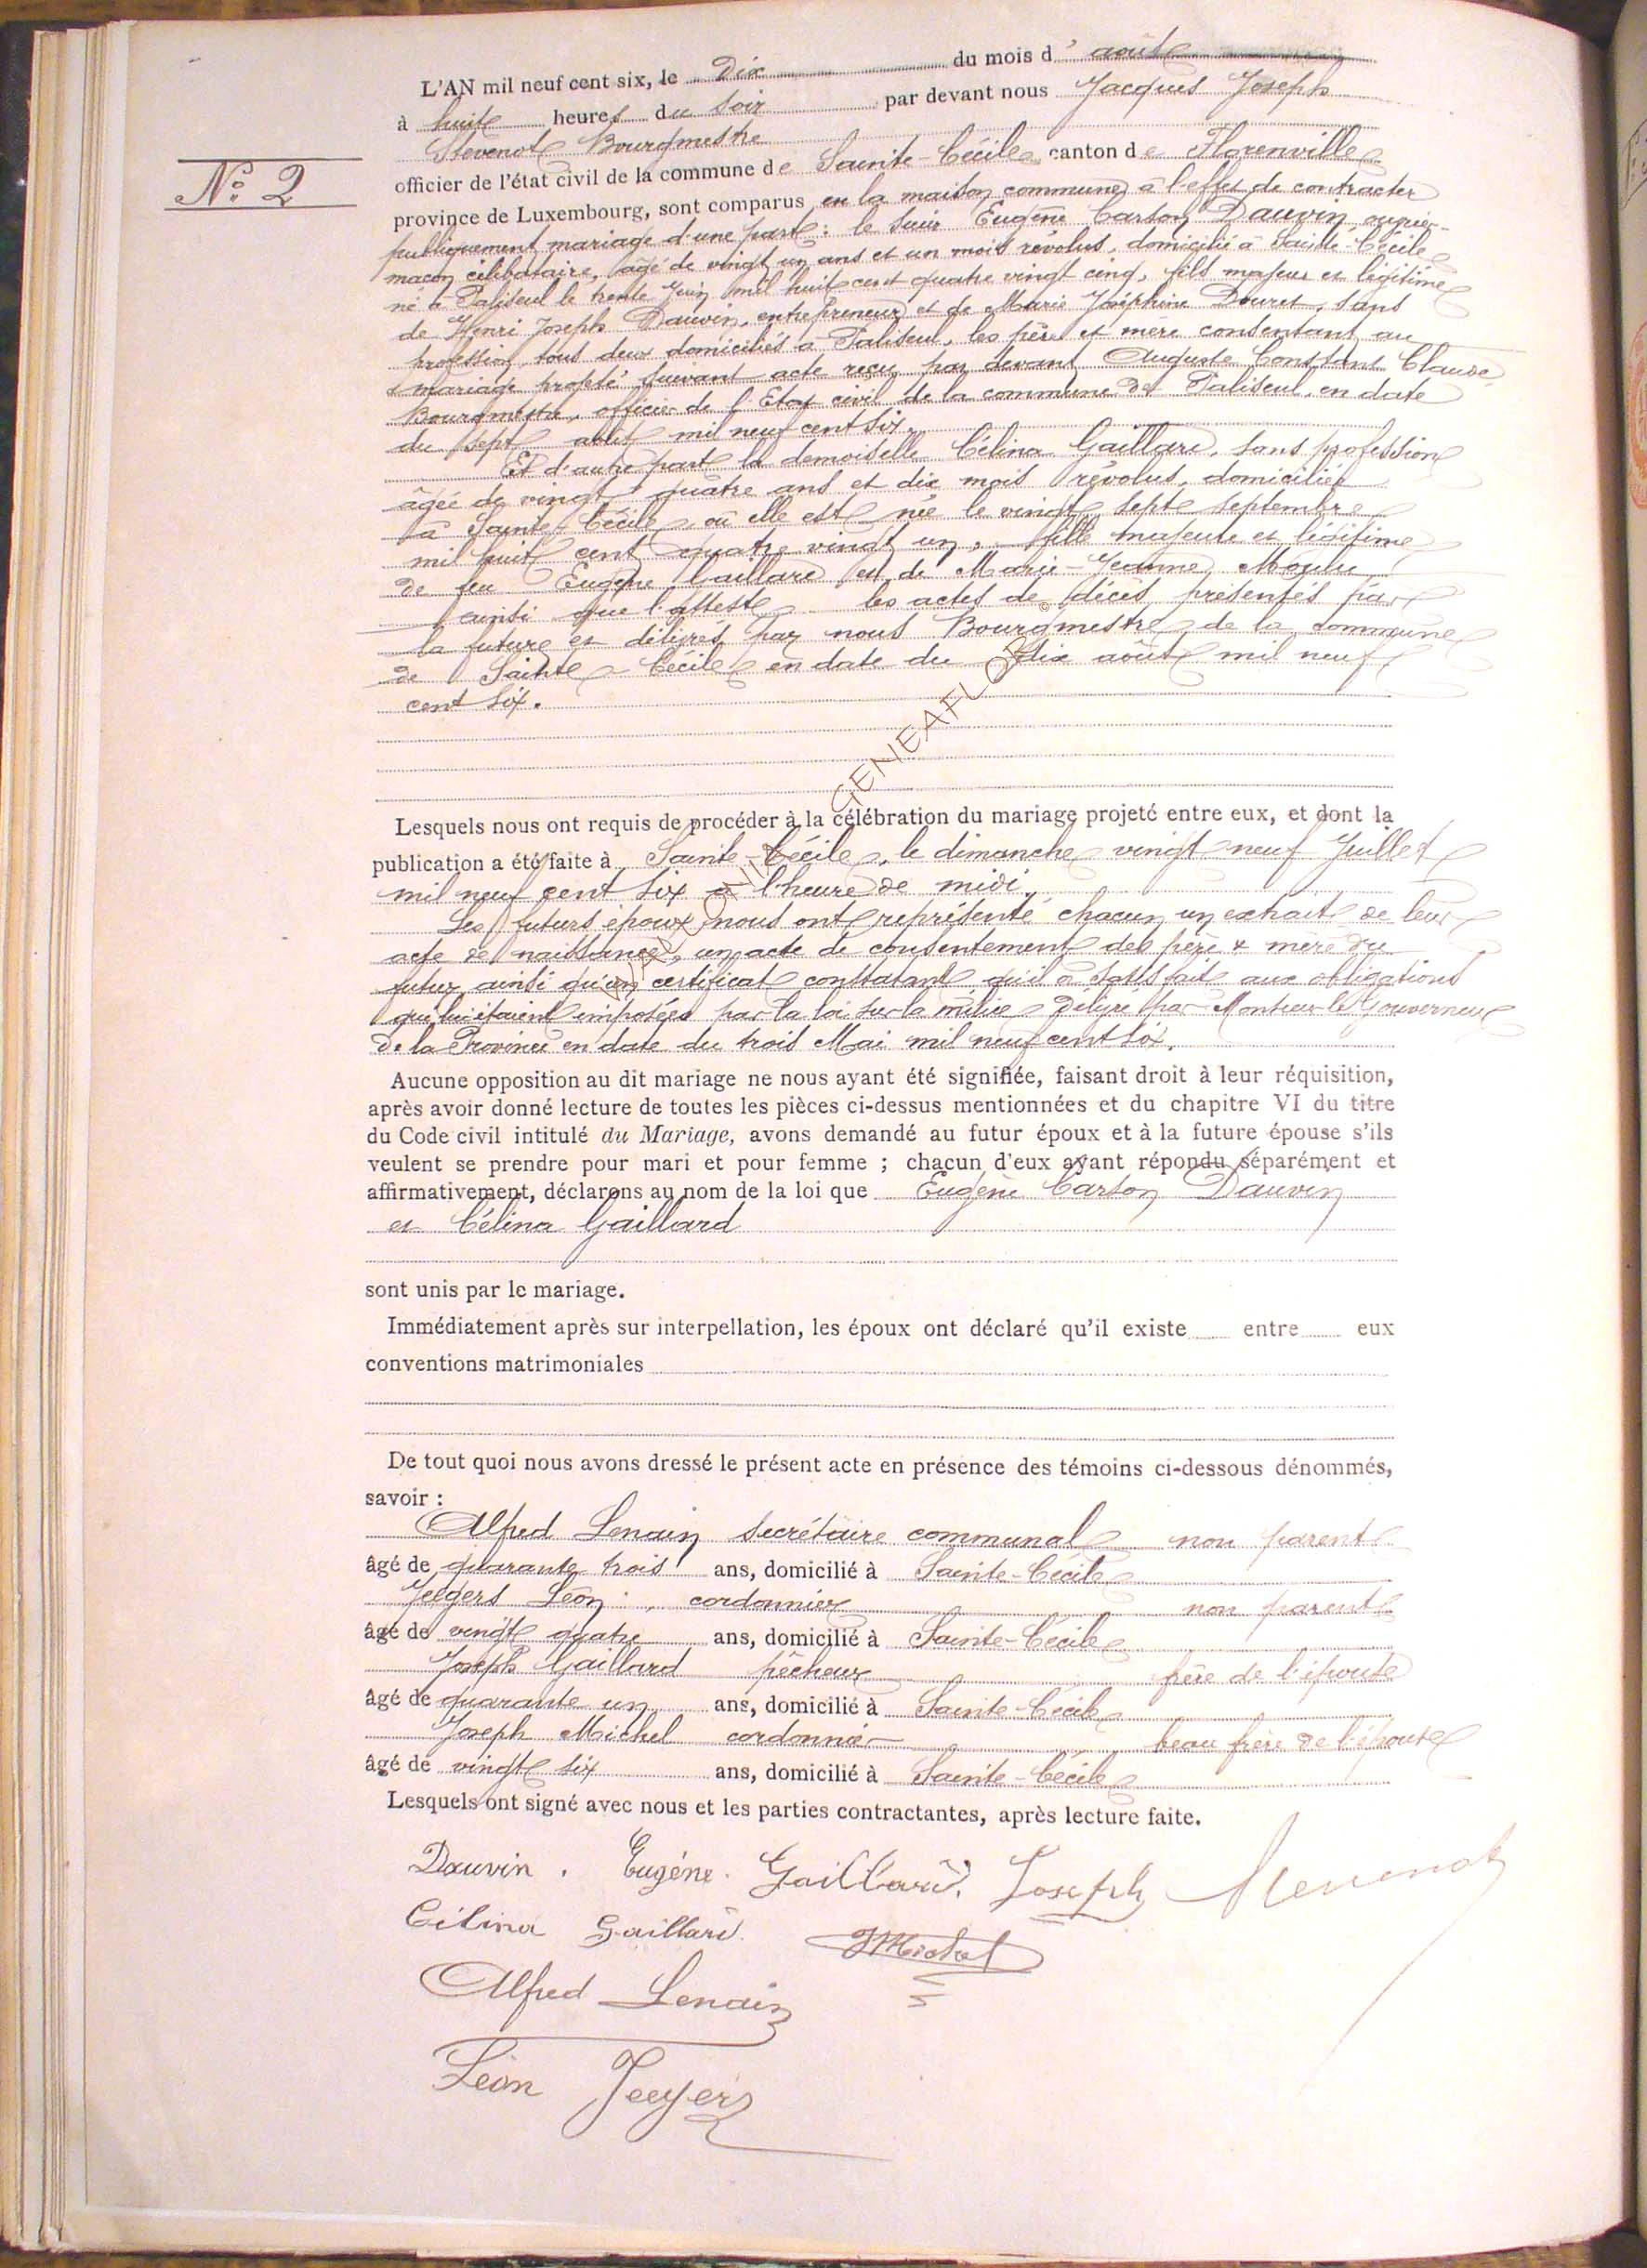 L'AN mil neuf cent six, le Dix du mois d' août
à huit heures du soir par devant nous Jacques Joseph
Stevenot Bourgmestre
officier de l'état civil de la commune de Sainte-Cécile canton de Florenville
N° 2
province de Luxembourg, sont comparus en la maison commune à l'effet de contracter
publiquement mariage d'une part : le sieur Eugène Carton Dauvin, ouvrier-
maçon célibataire, âgé de vingt un ans et un mois révolus, domicilié à Sainte-Cécile
né à Paliseul le trente Juin mil huit cent quatre vingt cinq, fils majeur et légitime
de Henri Joseph Dauvin, entrepreneur et de Marie Joséphine Douret, sans
profession, tous deux domiciliés à Paliseul, les père et mère consentant au
mariage projeté suivant acte reçu par devant Auguste Constant Claude,
Bourgmestre, officier de l'Etat civil de la commune de Paliseul, en date
du sept août mil neuf cent six.
Et d'autre part la demoiselle Célina Gaillard, sans profession
âgée de vingt quatre ans et dix mois révolus, domiciliée
à Sainte-Cécile où elle est née le vingt sept septembre
mil huit cent quatre vingt un, fille majeure et légitime
de feu Eugène Gaillard et de Marie-Jeanne
ainsi que l'atteste les actes de décès présentés par
la future et délivrés par nous Bourgmestre de la commune
de Sainte-Cécile en date du dix août mil neuf
cent six.
Lesquels nous ont requis de procéder à la célébration du mariage projeté entre eux, et dont la
publication a été faite à Sainte-Cécile, le dimanche vingt neuf Juillet
mil neuf cent six à l'heure de midi.
Les futurs époux nous ont représenté chacun un extrait de leur
acte de naissance, un acte de consentement des père & mère du
futur ainsi qu'un certificat constatant qu'il a satisfait aux obligations
qui lui étaient imposées par la loi sur la milice délivré par Monsieur le Gouverneur
de la Province en date du trois Mai mil neuf cent six.
Aucune opposition au dit mariage ne nous ayant été signifiée, faisant droit à leur réquisition,
après avoir donné lecture de toutes les pièces ci-dessus mentionnées et du chapitre VI du titre
du Code civil intitulé du Mariage, avons demandé au futur époux et à la future épouse s'ils
veulent se prendre pour mari et pour femme ; chacun d'eux ayant répondu séparément et
affirmativement, déclarons au nom de la loi que Eugène Carton Dauvin
et Célina Gaillard
sont unis par le mariage.
Immédiatement après sur interpellation, les époux ont déclaré qu'il existe entre eux
conventions matrimoniales
De tout quoi nous avons dressé le présent acte en présence des témoins ci-dessous dénommés,
savoir :
Alfred Lenain secrétaire communal non parent
âgé de quarante trois ans, domicilié à Sainte-Cécile
Jeegers Léon, cordonnier non parent
âgé de vingt quatre ans, domicilié à Sainte-Cécile
Joseph Gaillard pêcheur frère de l'épouse
âgé de quarante un ans, domicilié à Sainte-Cécile
Joseph Michel cordonnier beau frère de l'épouse
âgé de vingt six ans, domicilié à Sainte-Cécile
Lesquels ont signé avec nous et les parties contractantes, après lecture faite.
Dauvin. Eugène. Gaillard. Joseph Stevenot
Célina Gaillard. JMichel
Alfred Lenain
Léon Jeegers